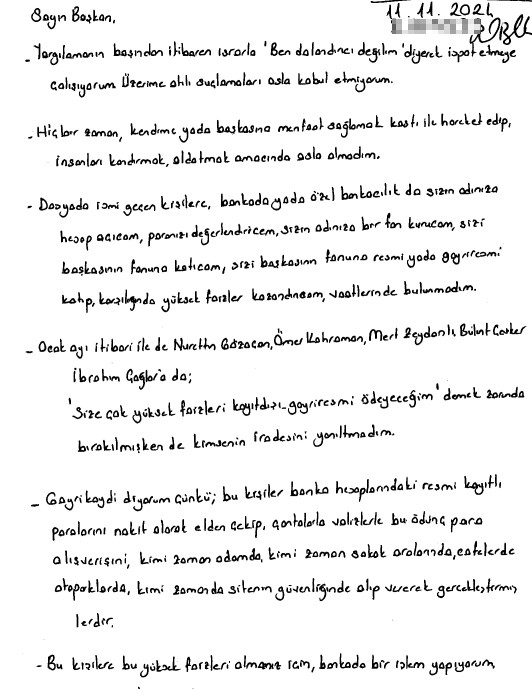 Sayın Başkan,
11.11.2024
- Yargılamanın başından itibaren ısrarla 'Ben dolandırıcı değilim' diyerek ispat etmeye
çalışıyorum Üzerime atılı suçlamaları asla kabul etmiyorum.
- Hiçbir zaman, kendime yada başkasına menfaat sağlamak kastı ile hareket edip,
insanları kandırmak, aldatmak amacında asla olmadım.
- Dosyada ismi geçen kişilere, bankada yada özel bankacılık da sizin adınıza
hesap açıcam, paranızı değerlendiricem, sizin adınıza bir fon kurucam, sizi
başkasının fonuna katıcam, sizi başkasının fonuna resmi yada gayriresmi
katıp, karşılığında yüksek faizler kazandırıcam, vaatlerinde bulunmadım.
- Ocak ayı itibari ile de Nurettin Ömer Kahraman, Mert Zeydanlı, Bülent
İbrahim Çağlar'a da;
'Size çok yüksek faizleri kayıtdışı-gayriresmi ödeyeceğim' demek zorunda
bırakılmışken de kimsenin iradesini yanıltmadım.
- Gayrikaydi diyorum çünkü; bu kişiler banka hesaplarındaki resmi kayıtlı
paralarını nakit olarak elden çekip, çantalarla valizlerle bu ödünç para
alışverişini, kimi zaman odamda, kimi zaman sokak aralarında, cafelerde
otoparklarda, kimi zamanda sitenin güvenliğinde alıp vererek gerçekleştirmiş
lerdir.
- Bu kişilere bu yüksek faizleri almanız için, bankada bir işlem yapıyorum